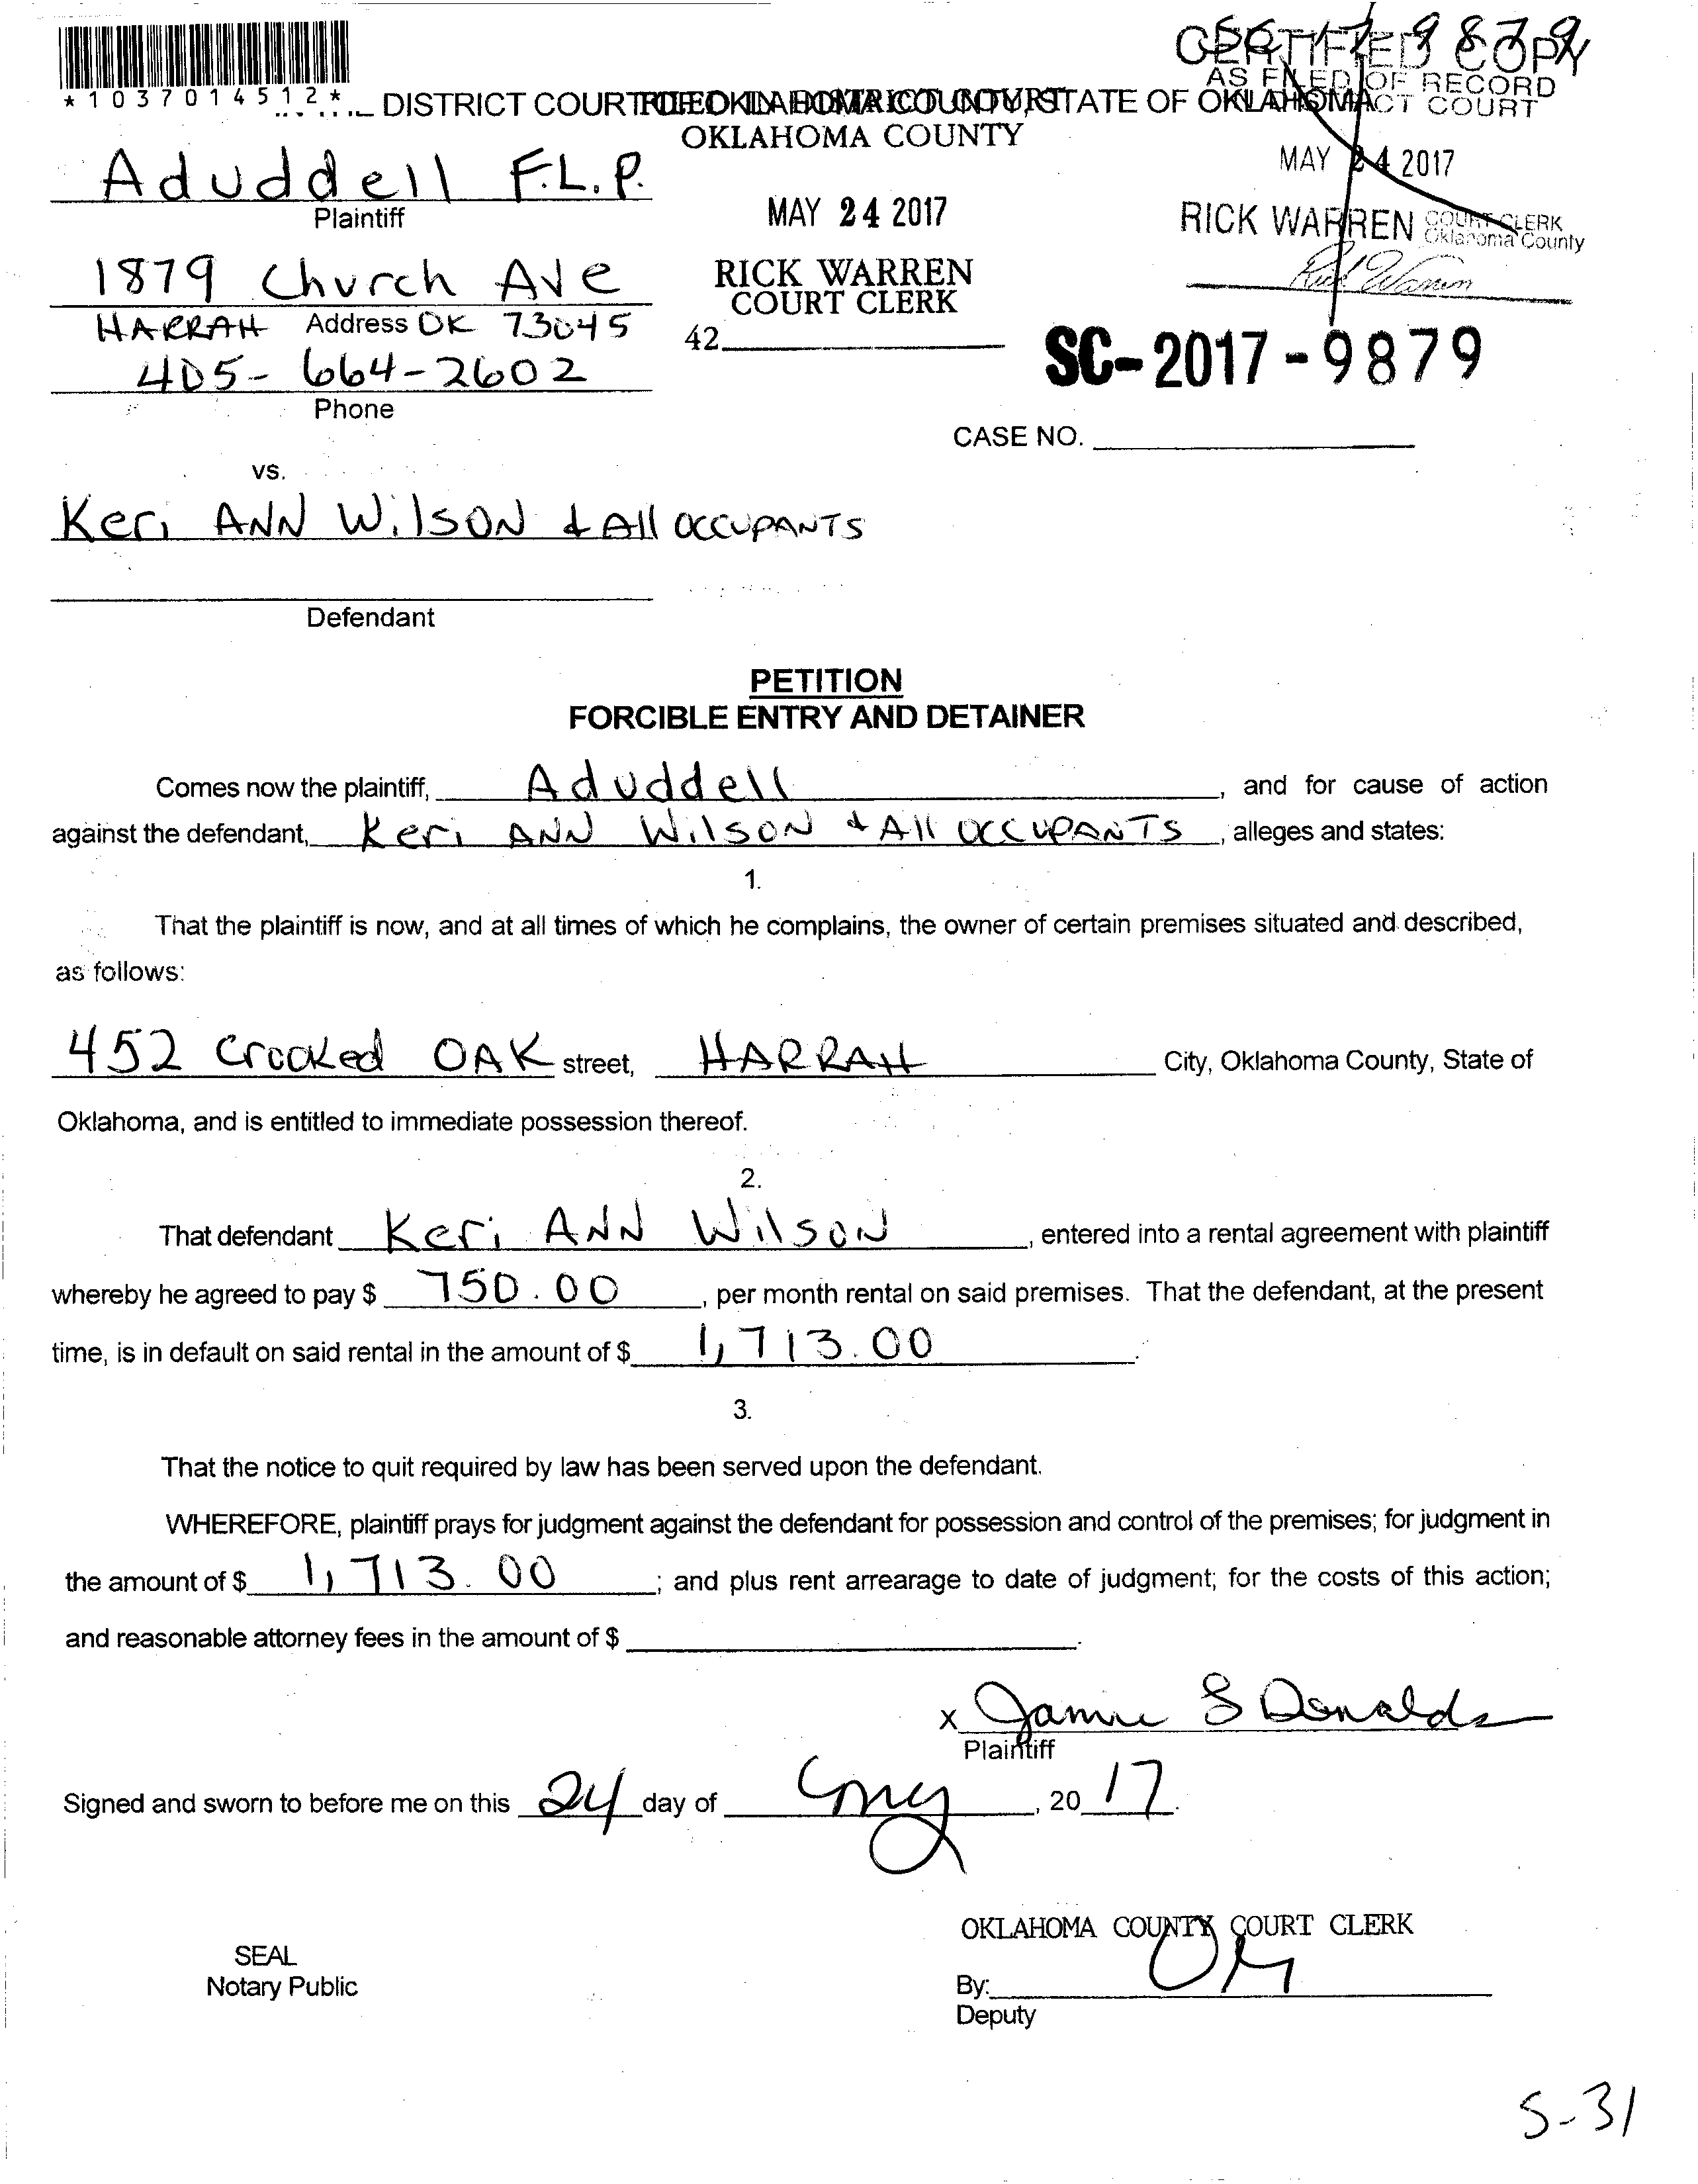 SC-17-9879
CERTIFIED COPY
AS FILED OF RECORD
*1037014512*
DISTRICT COURT STATE OF OKLAHOMA COURT
OKLAHOMA COUNTY
Aduddell F.L.P.
Plaintiff
MAY 24 2017
MAY 24 2017
RICK WARREN COURT CLERK
Oklahoma County
Rick Warren
1879 Church Ave
RICK WARREN
COURT CLERK
HARRAH Address OK 73045
42
405-664-2602
Phone
SC-2017-9879
CASE NO.
vs.
Keri ANN WilSON & All OCCUPANTS
Defendant
PETITION
FORCIBLE ENTRY AND DETAINER
Comes now the plaintiff, Aduddell, and for cause of action
against the defendant, Keri ANN WilSON & All OCCUPANTS, alleges and states:
1.
That the plaintiff is now, and at all times of which he complains, the owner of certain premises situated and described,
as follows:
452 Crooked OAK street, HARRAH City, Oklahoma County, State of
Oklahoma, and is entitled to immediate possession thereof.
2.
That defendant Keri ANN WilSON, entered into a rental agreement with plaintiff
whereby he agreed to pay $ 750.00, per month rental on said premises. That the defendant, at the present
time, is in default on said rental in the amount of $ 1,713.00.
3.
That the notice to quit required by law has been served upon the defendant.
WHEREFORE, plaintiff prays for judgment against the defendant for possession and control of the premises; for judgment in
the amount of $ 1,713.00; and plus rent arrearage to date of judgment; for the costs of this action;
and reasonable attorney fees in the amount of $
x Jamie S Donalds
Plaintiff
Signed and sworn to before me on this 24 day of May, 2017.
OKLAHOMA COUNTY COURT CLERK
SEAL
Notary Public
By:
Deputy
5-31